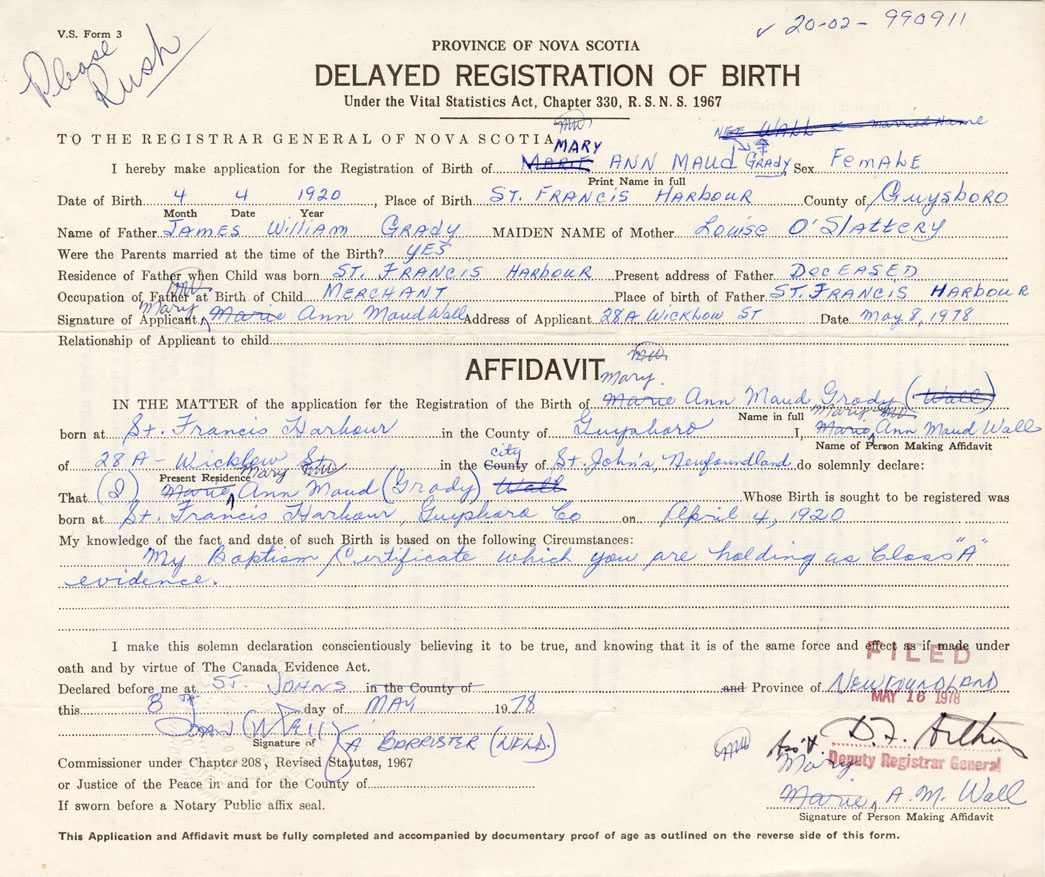 V.S. Form 3
Please Rush
✓ 20-02-990911
PROVINCE OF NOVA SCOTIA
DELAYED REGISTRATION OF BIRTH
Under the Vital Statistics Act, Chapter 330, R. S. N. S. 1967
NEE WALL married Name
TO THE REGISTRAR GENERAL OF NOVA SCOTIA
MARY
I hereby make application for the Registration of Birth of MARIE ANN MAUD GRADY, Sex FEMALE
Print Name in full
Date of Birth 4 4 1920, Place of Birth ST. FRANCIS HARBOUR County of Guysboro
Month Date Year
Name of Father JAMES William GRADY MAIDEN NAME of Mother Louise O'Slattery
Were the Parents married at the time of the Birth? YES
Residence of Father when Child was born ST. FRANCIS HARBOUR Present address of Father DECEASED
Occupation of Father at Birth of Child MERCHANT Place of birth of Father ST. FRANCIS HARBOUR
Mary
Signature of Applicant Marie Ann Maud Wall Address of Applicant 28A Wicklow ST Date May 8, 1978
Relationship of Applicant to child
AFFIDAVIT
Mary
IN THE MATTER of the application for the Registration of the Birth of Marie Ann Maud Grady (Wall)
Name in full Mary
born at St. Francis Harbour in the County of Guysboro I, Marie Ann Maud Wall
Name of Person Making Affidavit
city
of 28A - Wicklow St. in the County of St. John's, Newfoundland do solemnly declare:
Present Residence Mary
That (I) Marie Ann Maud (Grady) Wall Whose Birth is sought to be registered was
born at St. Francis Harbour, Guysboro Co on April 4, 1920
My knowledge of the fact and date of such Birth is based on the following Circumstances:
My Baptism Certificate which you are holding as Class "A"
evidence.
I make this solemn declaration conscientiously believing it to be true, and knowing that it is of the same force and effect as if made under
oath and by virtue of The Canada Evidence Act.
FILED
Declared before me at ST. JOHNS in the County of and Province of NEWFOUNDLAND
MAY 16 1978
this 8th day of MAY 1978
Signature of A BARRISTER (NFLD.)
Ass't. D.F. Arthur
Deputy Registrar General
Commissioner under Chapter 208, Revised Statutes, 1967
or Justice of the Peace in and for the County of
If sworn before a Notary Public affix seal.
Mary
Marie A. M. Wall
Signature of Person Making Affidavit
This Application and Affidavit must be fully completed and accompanied by documentary proof of age as outlined on the reverse side of this form.